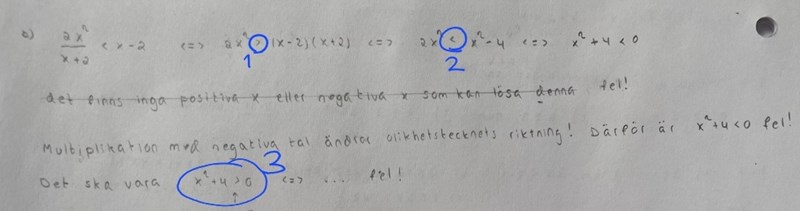 b) 2x²/(x+2) < x-2 <=> 2x² > (x-2)(x+2) <=> 2x² < x²-4 <=> x²+4 < 0
1 2
det finns inga positiva x eller negativa x som kan lösa denna. fel!
Multiplikation med negativa tal ändrar olikhetstecknets riktning! Därför är x²+4<0 fel!
3
Det ska vara x²+4 > 0 <=> ... fel!
↑